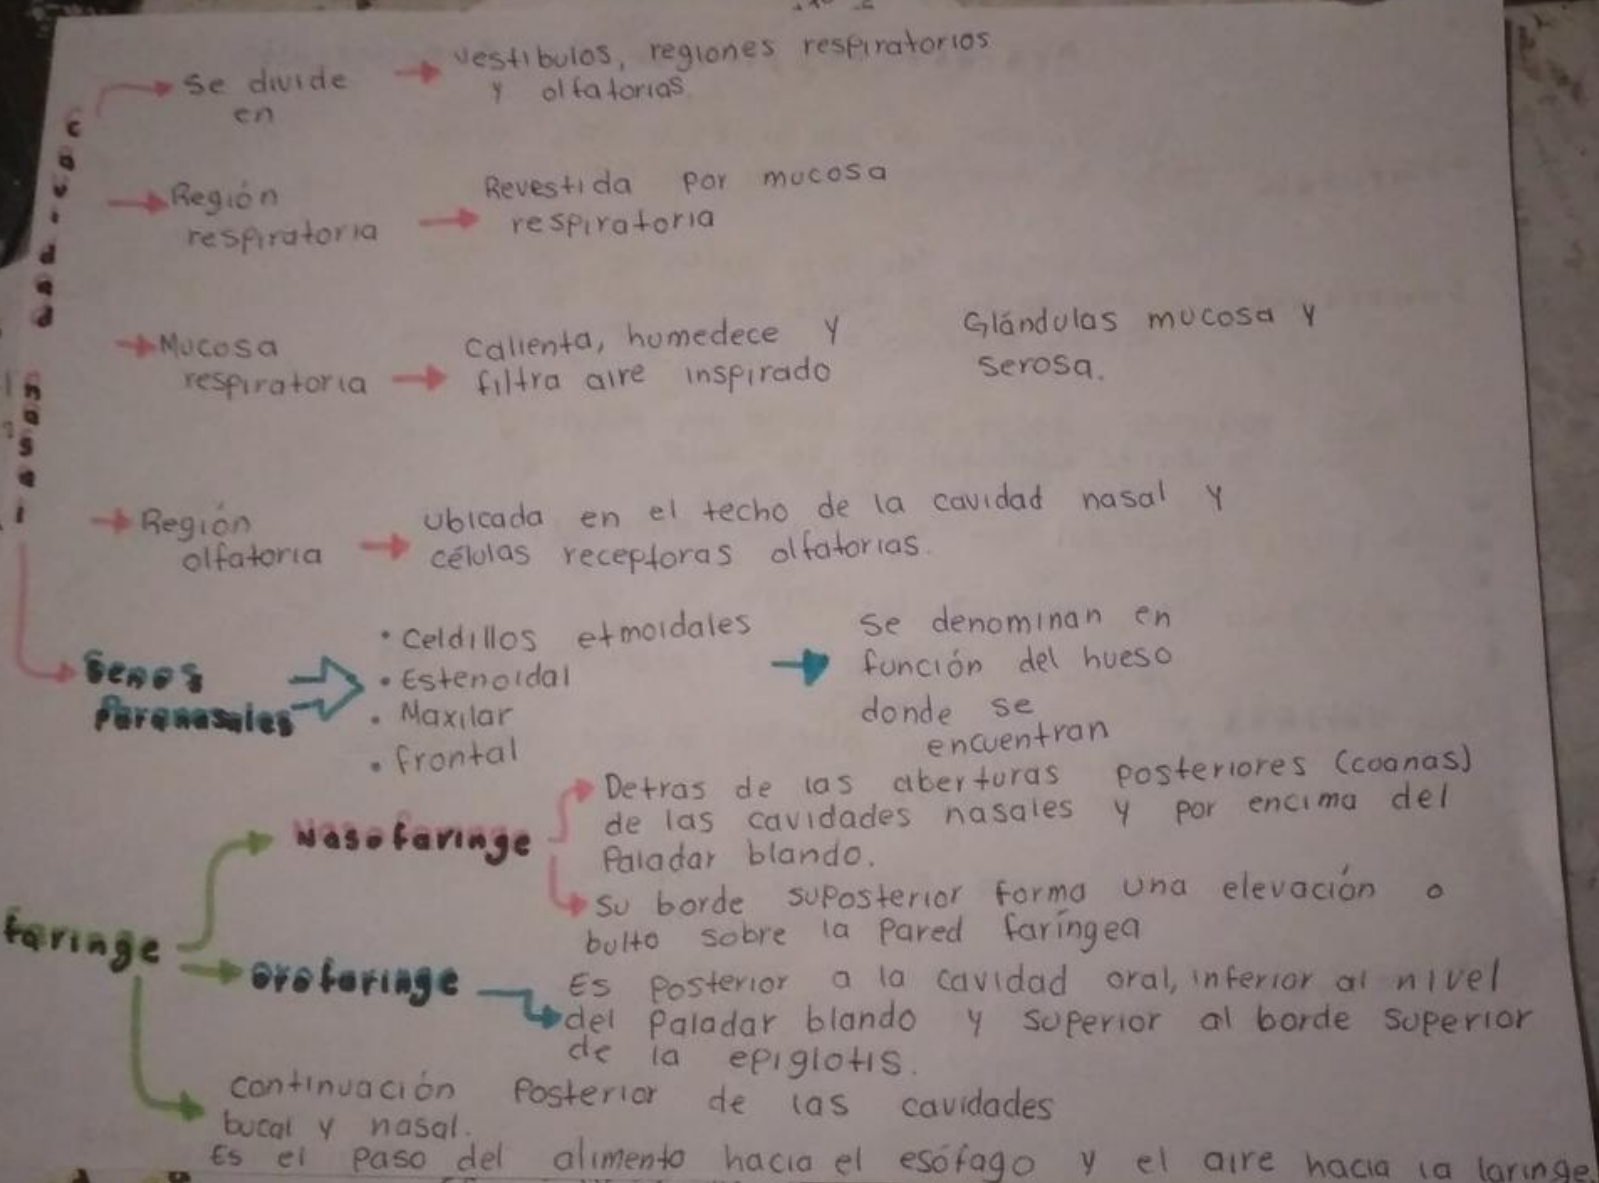 Cavidad nasal
Se divide
en
vestibulos, regiones respiratorios
y olfatorias
Región
respiratoria
Revestida por mucosa
respiratoria
Mucosa
respiratoria
Calienta, humedece y
filtra aire inspirado
Glándulas mucosa y
serosa.
Región
olfatoria
ubicada en el techo de la cavidad nasal y
células receptoras olfatorias.
Senos
Paranasales
• Celdillos etmoidales
• Estenoidal
• Maxilar
• frontal
Se denominan en
función del hueso
donde se
encuentran
faringe
Nasofaringe
Detras de las aberturas posteriores (coanas)
de las cavidades nasales y por encima del
Paladar blando.
Su borde suposterior forma una elevación o
bulto sobre la Pared faríngea
orofaringe
Es Posterior a la cavidad oral, inferior al nivel
del Paladar blando y superior al borde superior
de la epiglotis.
continuación Posterior de las cavidades
bucal y nasal.
Es el Paso del alimento hacia el esófago y el aire hacia la laringe.